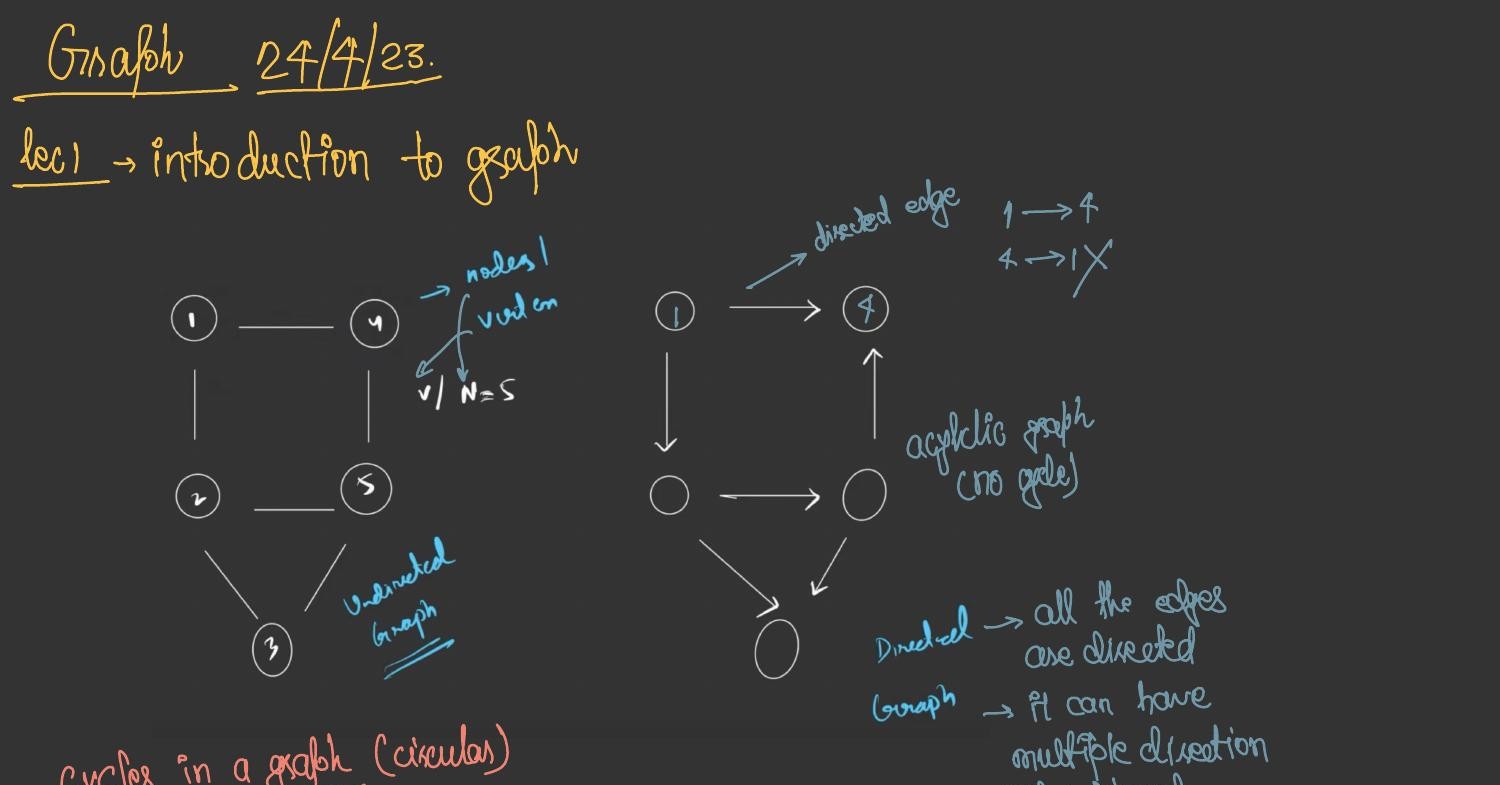 Graph 24/4/23.
lec1 → introduction to graph
directed edge
1 → 4
4 → 1 X
nodes /
V / N = 5
1
4
2
5
3
Undirected
Graph
1
4
acyclic graph
(no cycle)
Directed → all the edges
are directed
Graph → it can have
multiple direction
cycles in a graph (circular)